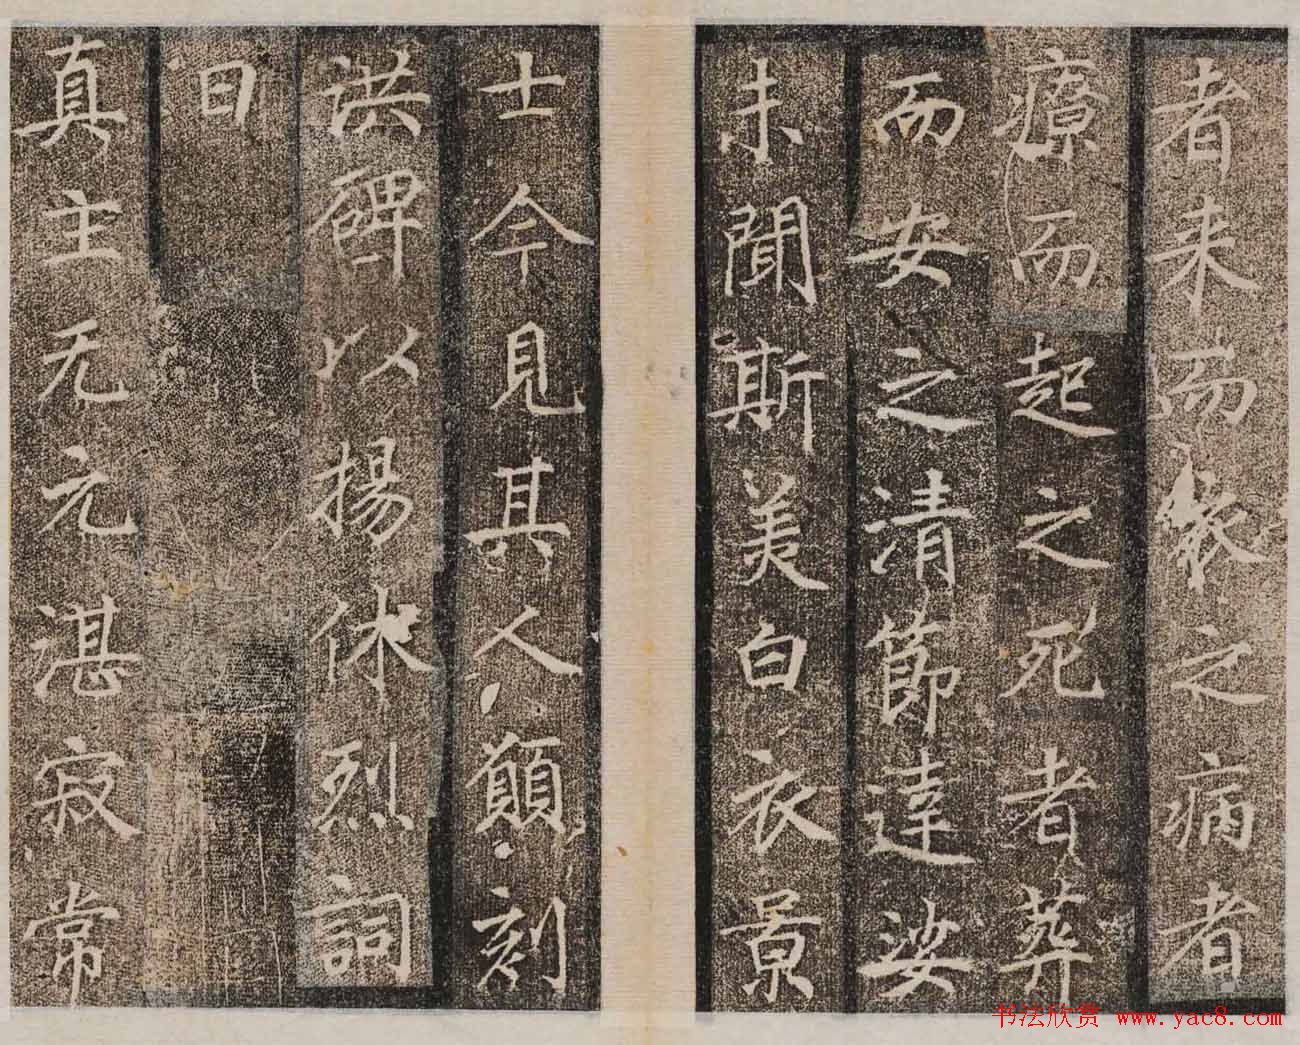 者来而衣之病者
療而起之死者葬
而安之清節達娑
未聞斯美白衣景
士今見其人願刻
洪碑以揚休烈詞
曰
真主无元湛寂常
书法欣赏 www.yac8.com